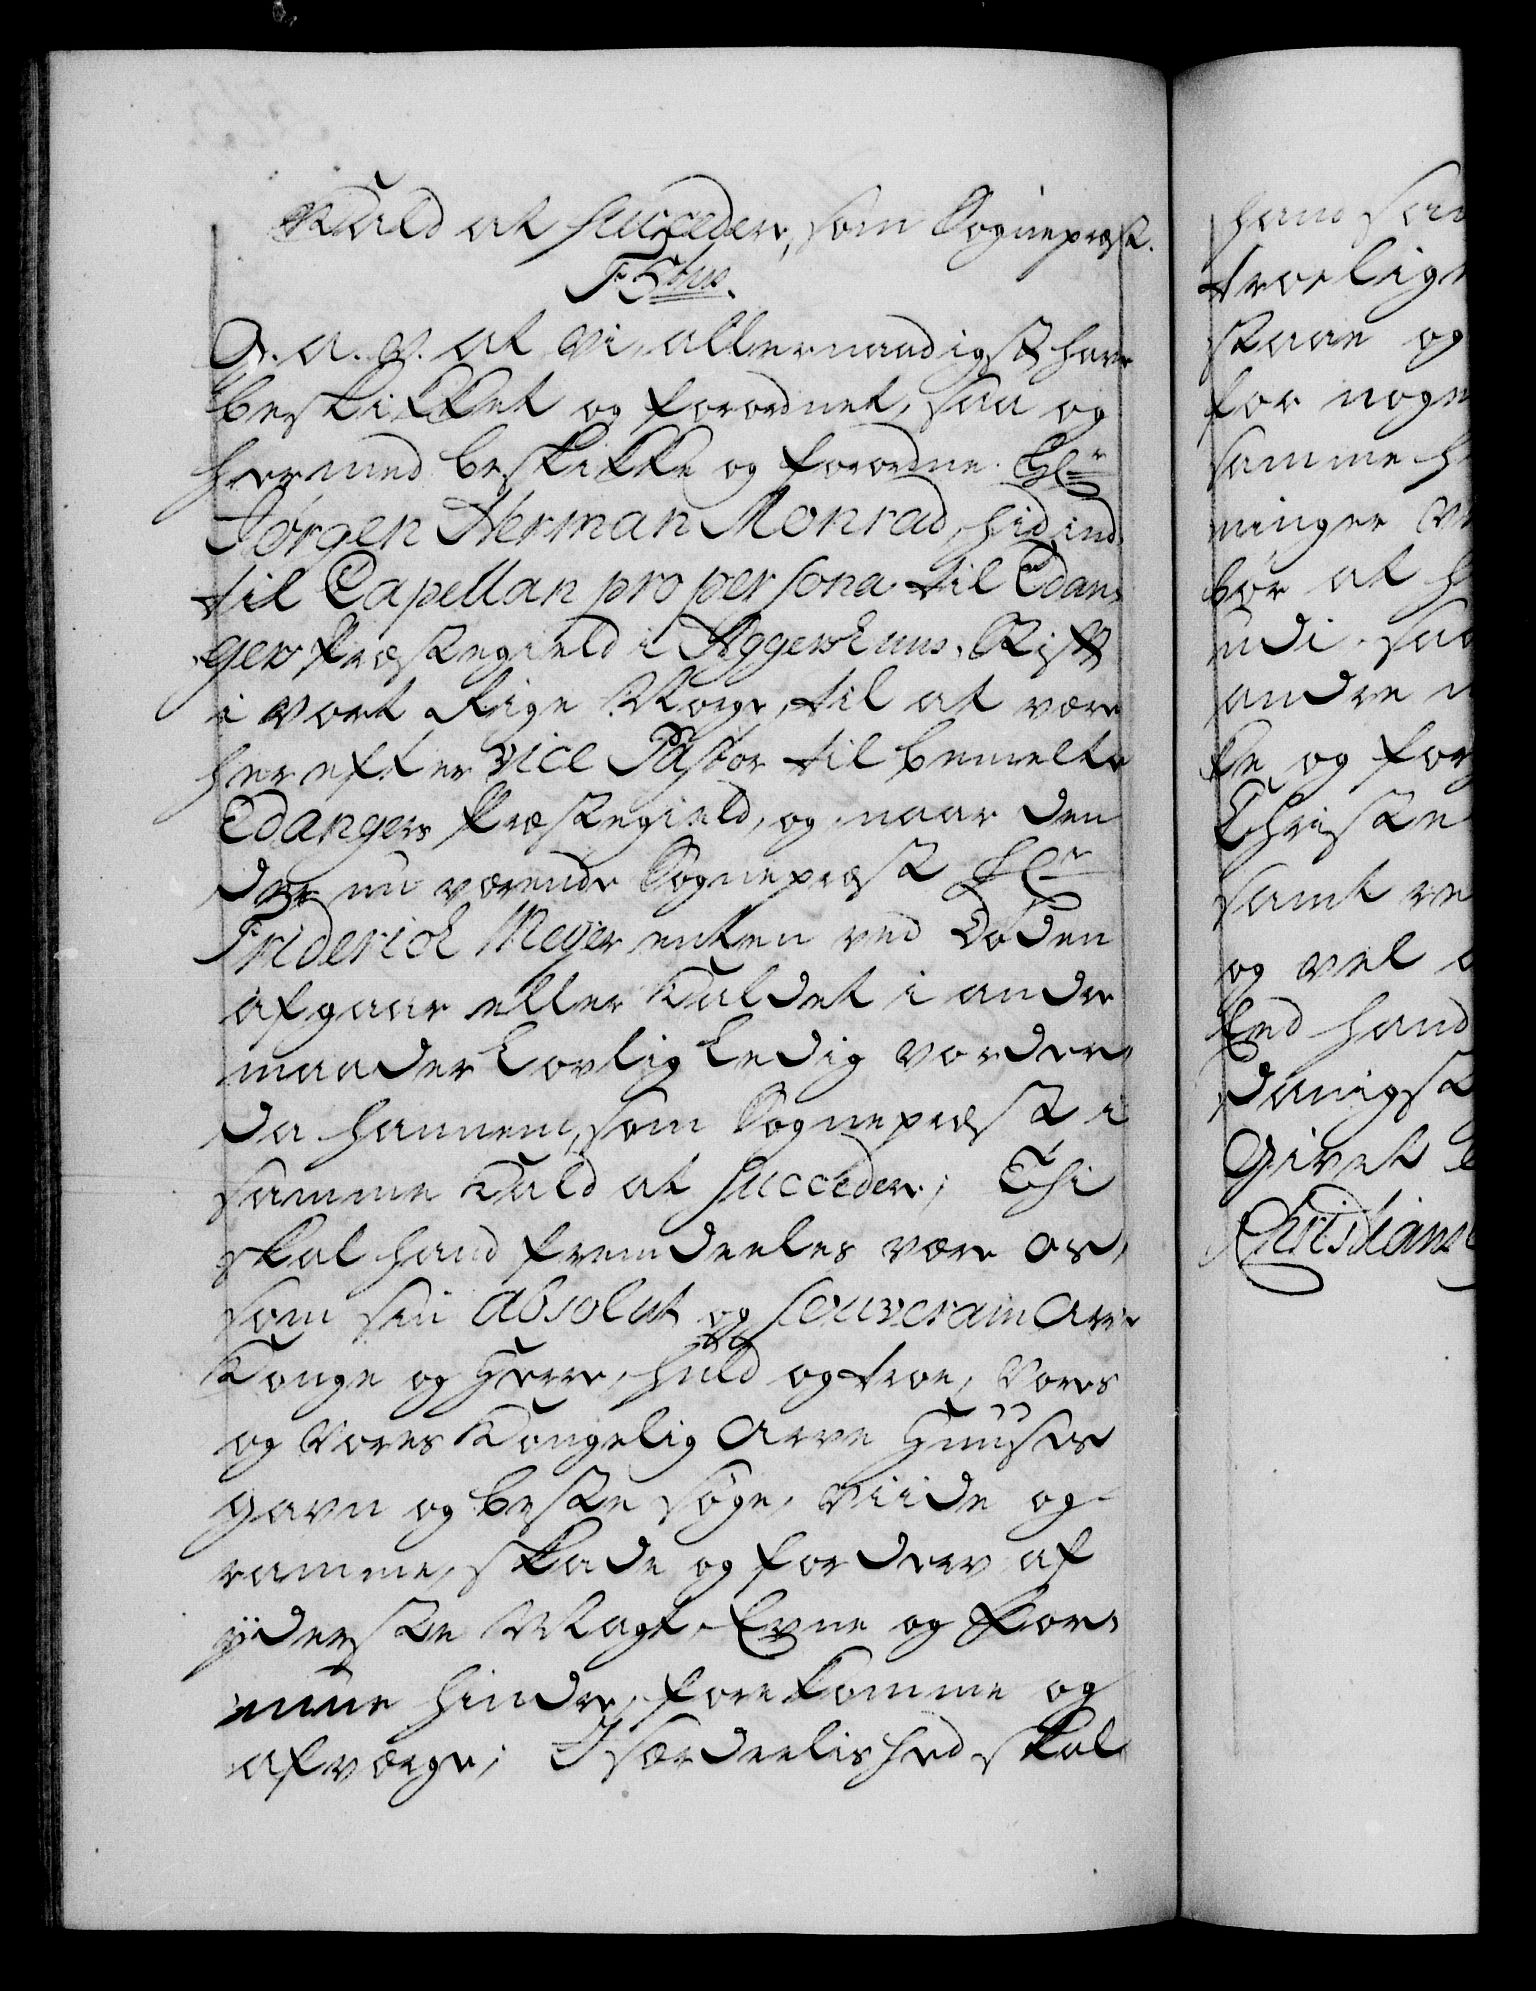 Kald at succedere, som Sognepræst.
F 5tus.
G. a. V. at Vi allernaadigst have
beskikket og forordnet, saa og
hermed beskikke og forordne Hr
Jørgen Herman Monrad, hid ind
til Capellan pro persona til Edan-
gers Præstegield i Aggershuus Stift
i vort Rige Norge, til at være
herefter vice Pastor til bemelte
Edangers Præstegield, og naar den
der nu værende Sognepræst Hr
Friderich Meyer enten ved Døden
afgaar eller Kaldet i andre
maader Lovlig Ledig vorder,
da hannem, som Sognepræst i
samme Kald at succedere; Thi
skal hand fremdeeles være os,
som sin absolut og souverain Arve
Konge og Herre, huld og troe, Vores
og Vores Kongelig Arve Huuses
gavn og beste søge, viide og
ramme, skade og forderv af
yderste Magt, Evne og For-
mue hindre, forekomme og
afværge; Isærdeelished skal
hand saa
troelig
staae og
for noge
samme h
ninger V
bør at h
udi saa
andre
ke og for
Christe
samt re
og vel
Eed hand
danigst
Givet
Christians